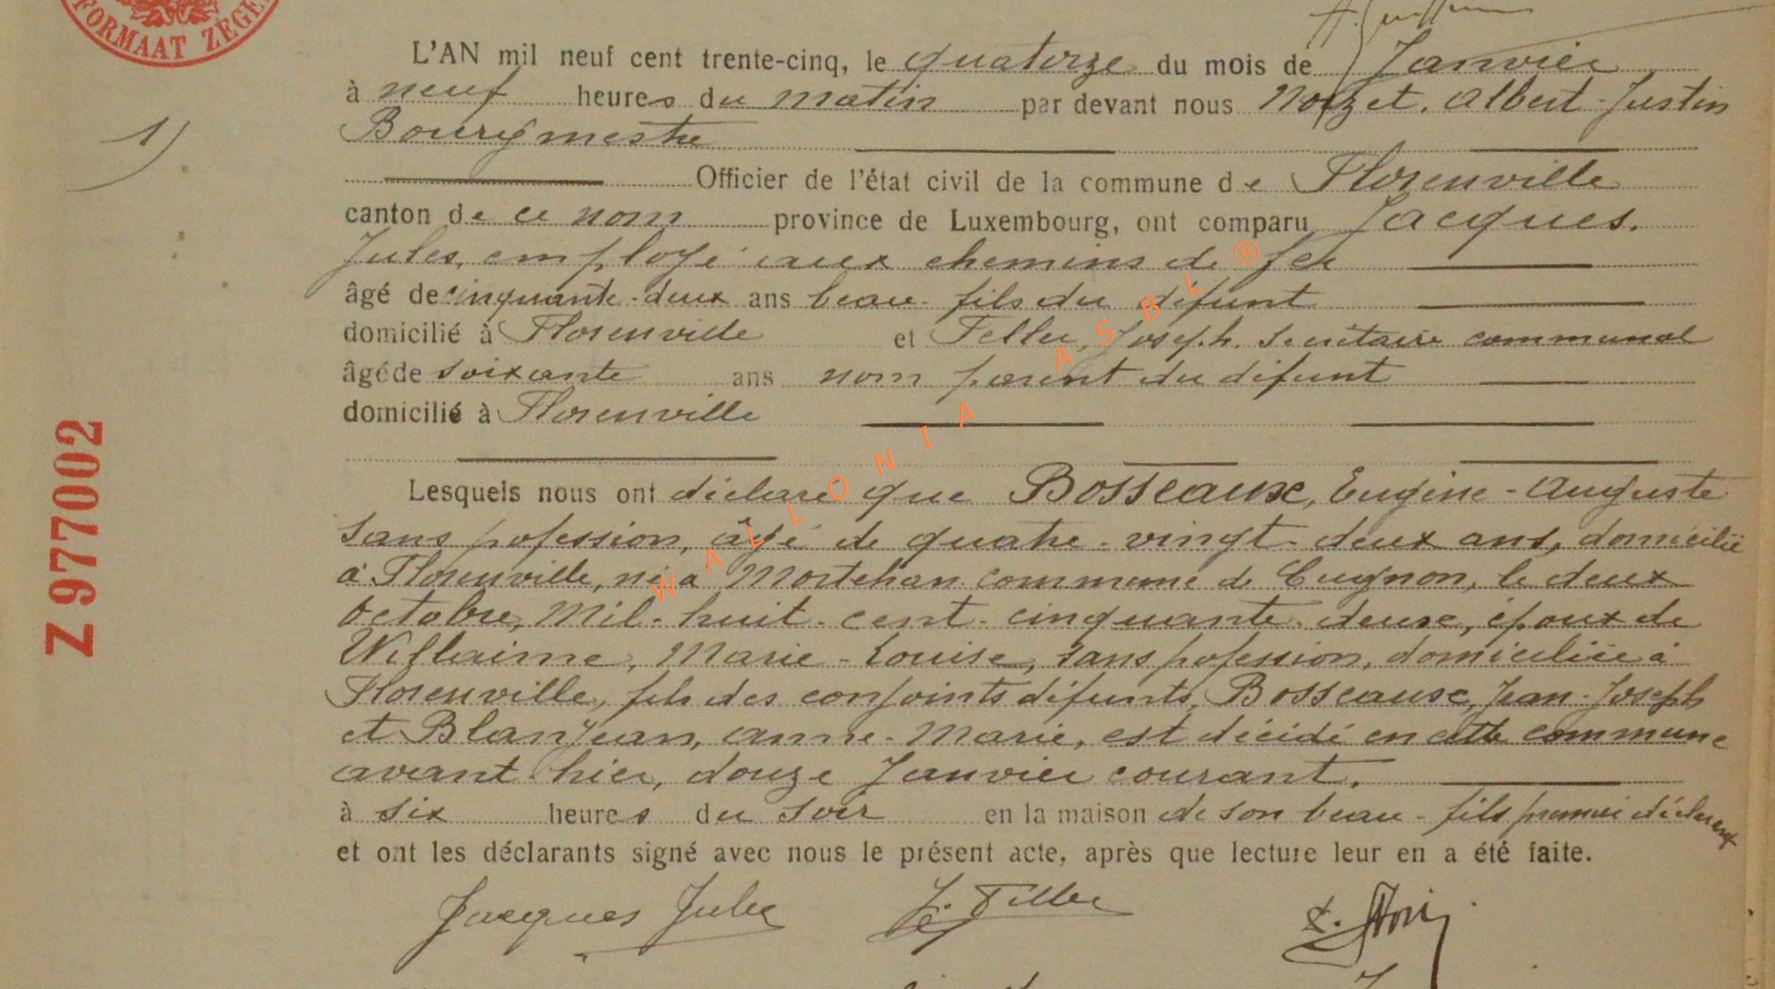 FORMAAT ZEGEL
L'AN mil neuf cent trente-cinq, le quatorze du mois de Janvier
à neuf heures du matin par devant nous Noizet, Albert-Justin
1)
Bourgmestre
Officier de l'état civil de la commune de Florenville
canton de ce nom province de Luxembourg, ont comparu Jacques,
Jules, employé aux chemins de fer
âgé de cinquante-deux ans beau-fils du défunt
domicilié à Florenville et Feller, Joseph, Secrétaire communal
âgé de soixante ans non parent du défunt
domicilié à Florenville
Z 977002
Lesquels nous ont déclaré que Bosseaux, Eugène-Auguste
sans profession, âgé de quatre-vingt-deux ans, domicilié
à Florenville, né à Mortehan commune de Cugnon, le deux
Octobre, Mil-huit-cent-cinquante-deux, époux de
Willaime, Marie-Louise, sans profession, domiciliée à
Florenville, fils des conjoints défunts, Bosseaux, Jean-Joseph
et Blanjean, Anne-Marie, est décédé en cette commune
avant hier, douze Janvier courant,
à six heures du soir en la maison de son beau-fils premier déclarant
et ont les déclarants signé avec nous le présent acte, après que lecture leur en a été faite.
Jacques Jules J. Feller
WALLONIA ASBL ®